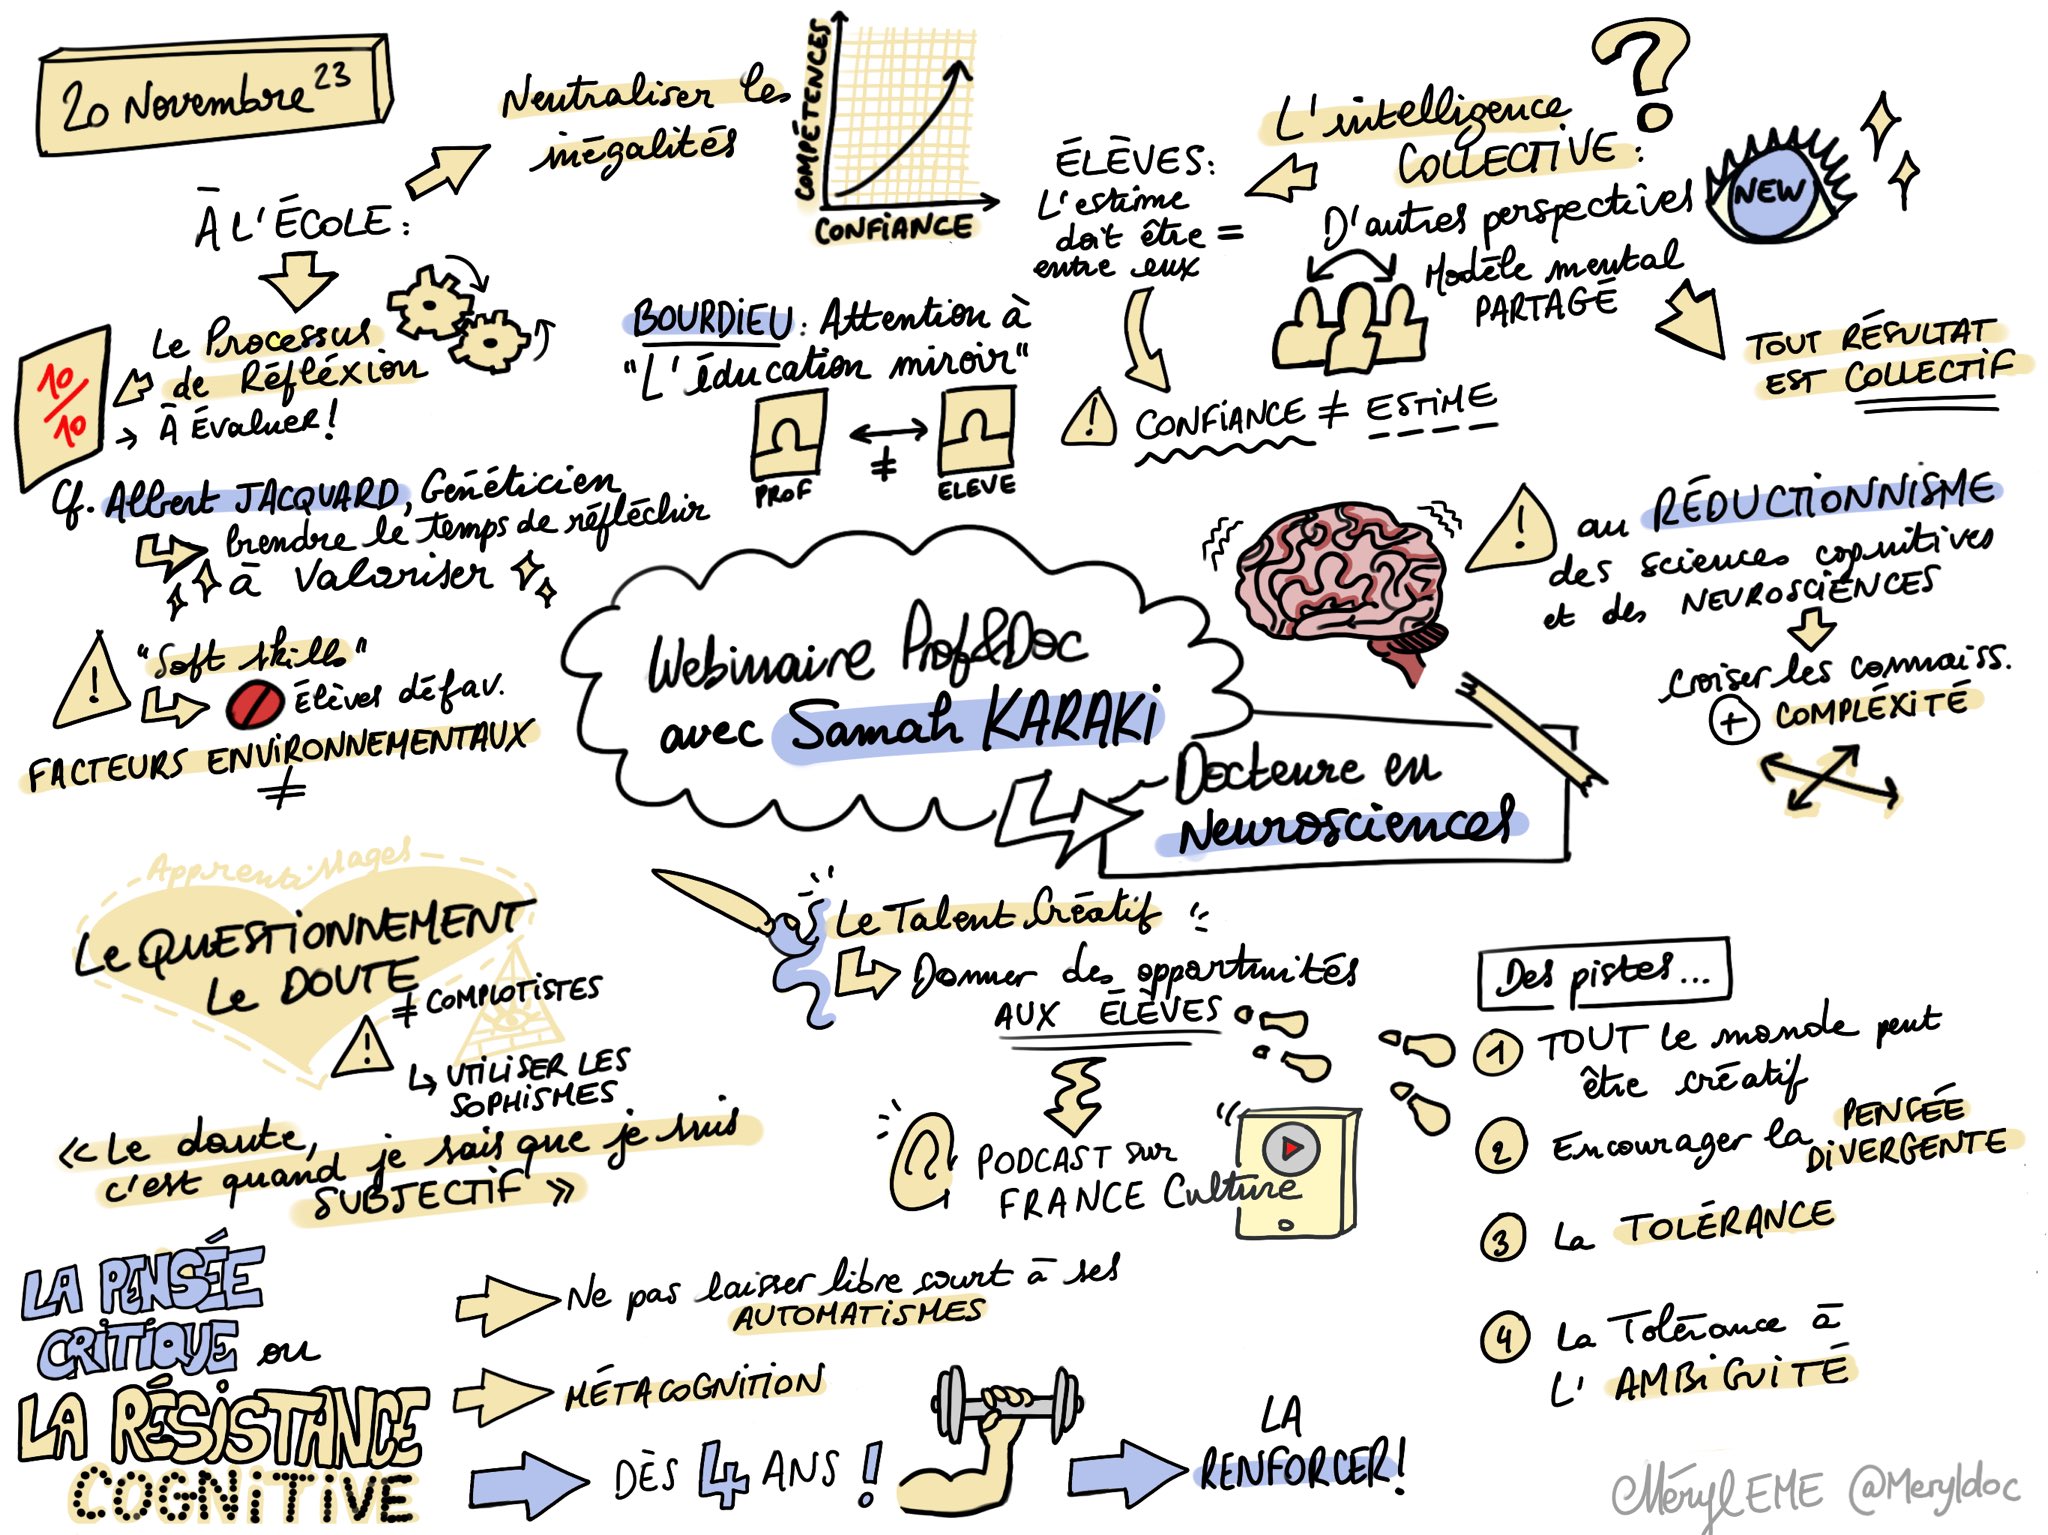 20 Novembre 23
À L'ÉCOLE :
Neutraliser les
inégalités
COMPÉTENCES
CONFIANCE
Le Processus
de Réfléxion
→ À Évaluer !
10/10
Cf. Albert JACQUARD, Généticien
Prendre le temps de réfléchir
à valoriser
"Soft skills"
Élèves défav.
FACTEURS ENVIRONNEMENTAUX
≠
BOURDIEU : Attention à
"L'éducation miroir"
PROF
≠
ELEVE
ÉLÈVES :
L'estime
doit être =
entre eux
CONFIANCE ≠ ESTIME
L'intelligence
COLLECTIVE :
?
D'autres perspectives
Modèle mental
PARTAGÉ
NEW
TOUT RÉSULTAT
EST COLLECTIF
au RÉDUCTIONNISME
des sciences cognitives
et des NEUROSCIENCES
croiser les connaiss.
+ COMPLÉXITÉ
Webinaire Prof&Doc
avec Samah KARAKI
Docteure en
Neurosciences
Apprentissages
Le QUESTIONNEMENT
Le DOUTE
≠ COMPLOTISTES
↳ UTILISER LES
SOPHISMES
« Le doute,
c'est quand je sais que je suis
SUBJECTIF »
Le Talent Créatif
Donner des opportunités
AUX ÉLÈVES
PODCAST sur
FRANCE Culture
Des pistes...
1 TOUT le monde peut
être créatif
2 Encourager la PENSÉE
DIVERGENTE
3 La TOLÉRANCE
4 La Tolérance à
L'AMBIGUITÉ
LA PENSÉE
CRITIQUE ou
LA RÉSISTANCE
COGNITIVE
Ne pas laisser libre court à ses
AUTOMATISMES
MÉTACOGNITION
DÈS 4 ANS !
LA
RENFORCER !
Méryl EME @Meryldoc